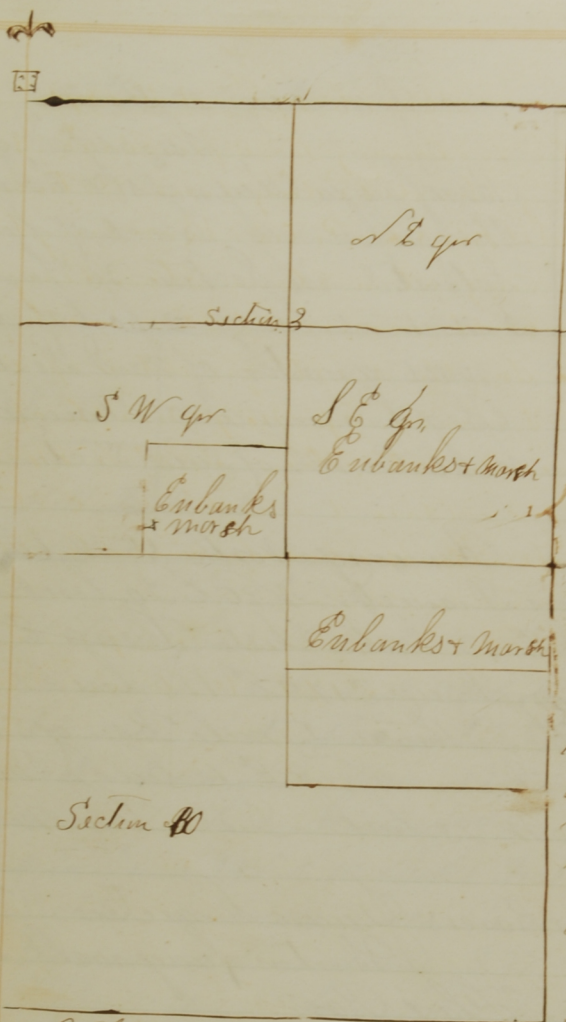 N E qr
Section 3
S W qr
S E qr.
Eubanks & Marsh
Eubanks
& Marsh
Eubanks & Marsh
Section 10